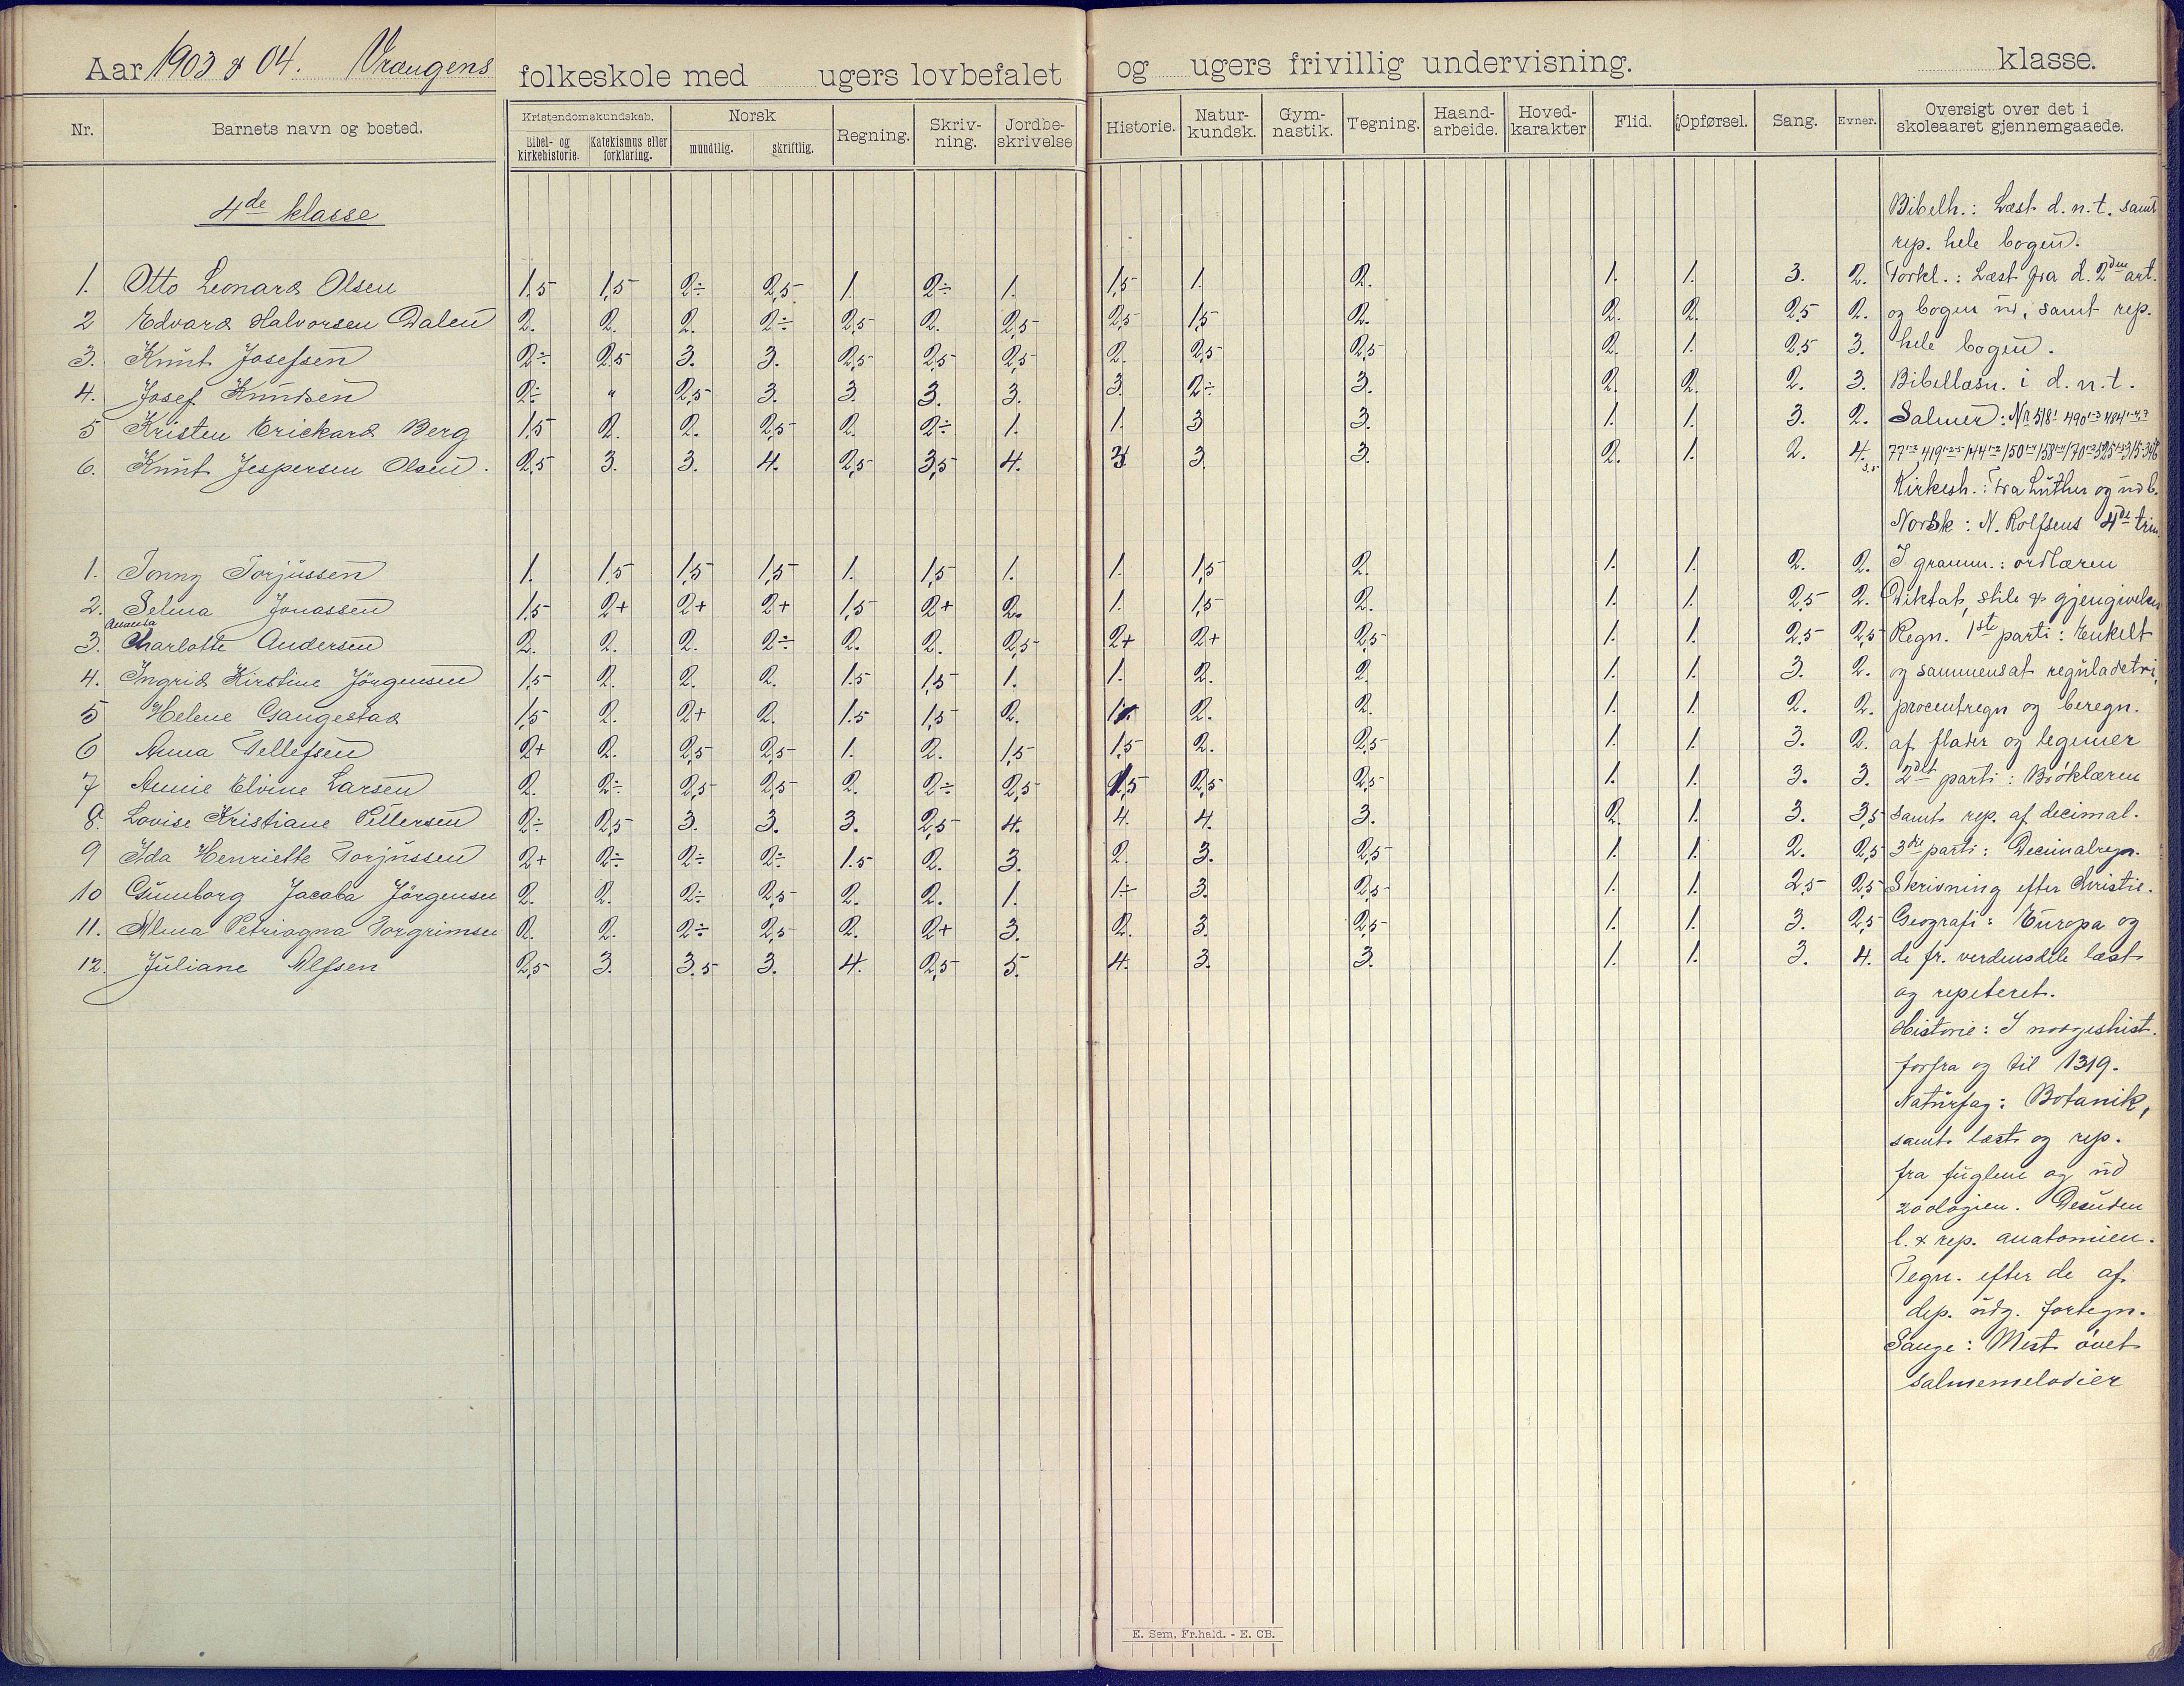 Aar 1903 & 04. Vrængens folkeskole med ugers lovbefalet og ugers frivillig undervisning. klasse.
Nr. Barnets navn og bosted. Kristendomskundskab. Bibel- og kirkehistorie. Katekismus eller forklaring. Norsk mundtlig. skriftlig. Regning. Skriv-ning. Jordbe-skrivelse Historie. Natur-kundsk. Gym-nastik. Tegning. Haand-arbeide. Hoved-karakter Flid. Opførsel. Sang. Evner. Oversigt over det i skoleaaret gjennemgaaede.
4de klasse
1. Otto Leonard Olsen 1,5 1,5 2÷ 2,5 1. 2÷ 1. 1,5 1. 2. 1. 1. 3. 2.
2 Edvard Halvorsen Dalen 2. 2. 2. 2÷ 2,5 2. 2,5 2,5 1,5 2. 2. 2. 2,5 2.
3. Knut Josefsen 2÷ 2,5 3. 3. 2,5 2,5 2,5 2. 2,5 2,5 2. 1. 2,5 3.
4. Josef Knudsen 2÷ " 2,5 3. 3. 3. 3. 3. 2÷ 3. 2. 2. 2. 3.
5 Kristen Erickard Berg 1,5 2. 2. 2,5 2. 2÷ 1. 1. 3 3. 1. 1. 3. 2.
6. Knut Jespersen Olsen. 2,5 3. 3. 4. 2,5 3,5 4. 3 3. 3. 2. 1. 2. 4. 3.5
1. Jonny Torjussen 1. 1,5 1,5 1,5 1. 1,5 1. 1. 1,5 2. 1. 1. 2. 2.
2. Selma Jonassen 1,5 2+ 2+ 2+ 1,5 2+ 2. 1. 1,5 2. 1. 1. 2,5 2.
Amanda
3. Charlotte Andersen 2. 2. 2. 2÷ 2. 2. 2,5 2+ 2+ 2,5 1. 1. 2,5 2,5
4. Ingrid Kirstine Jörgensen 1,5 2. 2. 2. 1.5 1,5 1. 1. 2. 2. 1. 1. 3. 2.
5 Helene Gangestad 1,5 2. 2+ 2. 1.5 1,5 2. 1. 2. 2. 1. 1. 2. 2.
6 Anna Tellefsen 2+ 2. 2,5 2,5 1. 2. 1,5 1,5 2. 2,5 1. 1. 3. 2.
7 Annie Elvine Larsen 2. 2÷ 2,5 2,5 2. 2÷ 2,5 1,5 2,5 2,5 1. 1. 3. 3.
8. Lovise Kristiane Pettersen 2÷ 2,5 3. 3. 3. 2,5 4. 4. 4. 3. 2. 1. 3. 3,5
9 Ida Henriette Torjussen 2+ 2÷ 2÷ 2÷ 1.5 2. 3. 2. 3. 2,5 1. 1. 2. 2,5
10 Gunnborg Jacoba Jörgensen 2. 2. 2÷ 2,5 2. 2. 1. 1÷ 3. 2,5 1. 1. 2,5 2,5
11. Alma Petriagna Torgrimsen 2. 2. 2÷ 2,5 2. 2+ 3. 2. 3. 2,5 1. 1. 3. 2,5
12. Juliane Alfsen 2,5 3. 3.5 3. 4. 2,5 5. 4. 3. 3. 1. 1. 3. 4.
Bibelh.: Læst d. n. t. samt
rep. hele bogen.
Forkl.: Læst fra d. 2den art.
og bogen ud, samt rep.
hele bogen.
Bibellæsn. i d. n. t.
Salmer: Nr 518
Kirkesh.: Fra Luther og ud b.
Norsk: N. Rolfsens 4de trin.
I gramm.: ordlæren
Diktat, stile & gjengivelser
Regn. 1ste parti: Enkelt
og sammensat reguladetri,
procentregn og beregn.
af flader og legemer
2det parti: Brøklæren
samt rep. af decimal.
3die parti: Decimalregn.
Skrivning efter Christie.
Geografi: Europa og
de fr. verdensdele læst
og repeteret.
Historie: I norgeshist.
forfra og til 1319.
Naturfag: Botanik,
samt læst og rep.
fra fuglene og ud
zoologien. Desuden
l. & rep. anatomien.
Tegn. efter de af
dep. udg. fortegn.
Sange: Mest øvet
salmemelodier
E. Sem, Fr.hald. - E. CB.